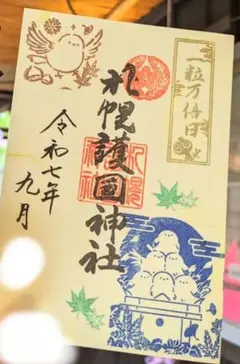 一粒万倍日
札幌護國神社
令和七年
九月